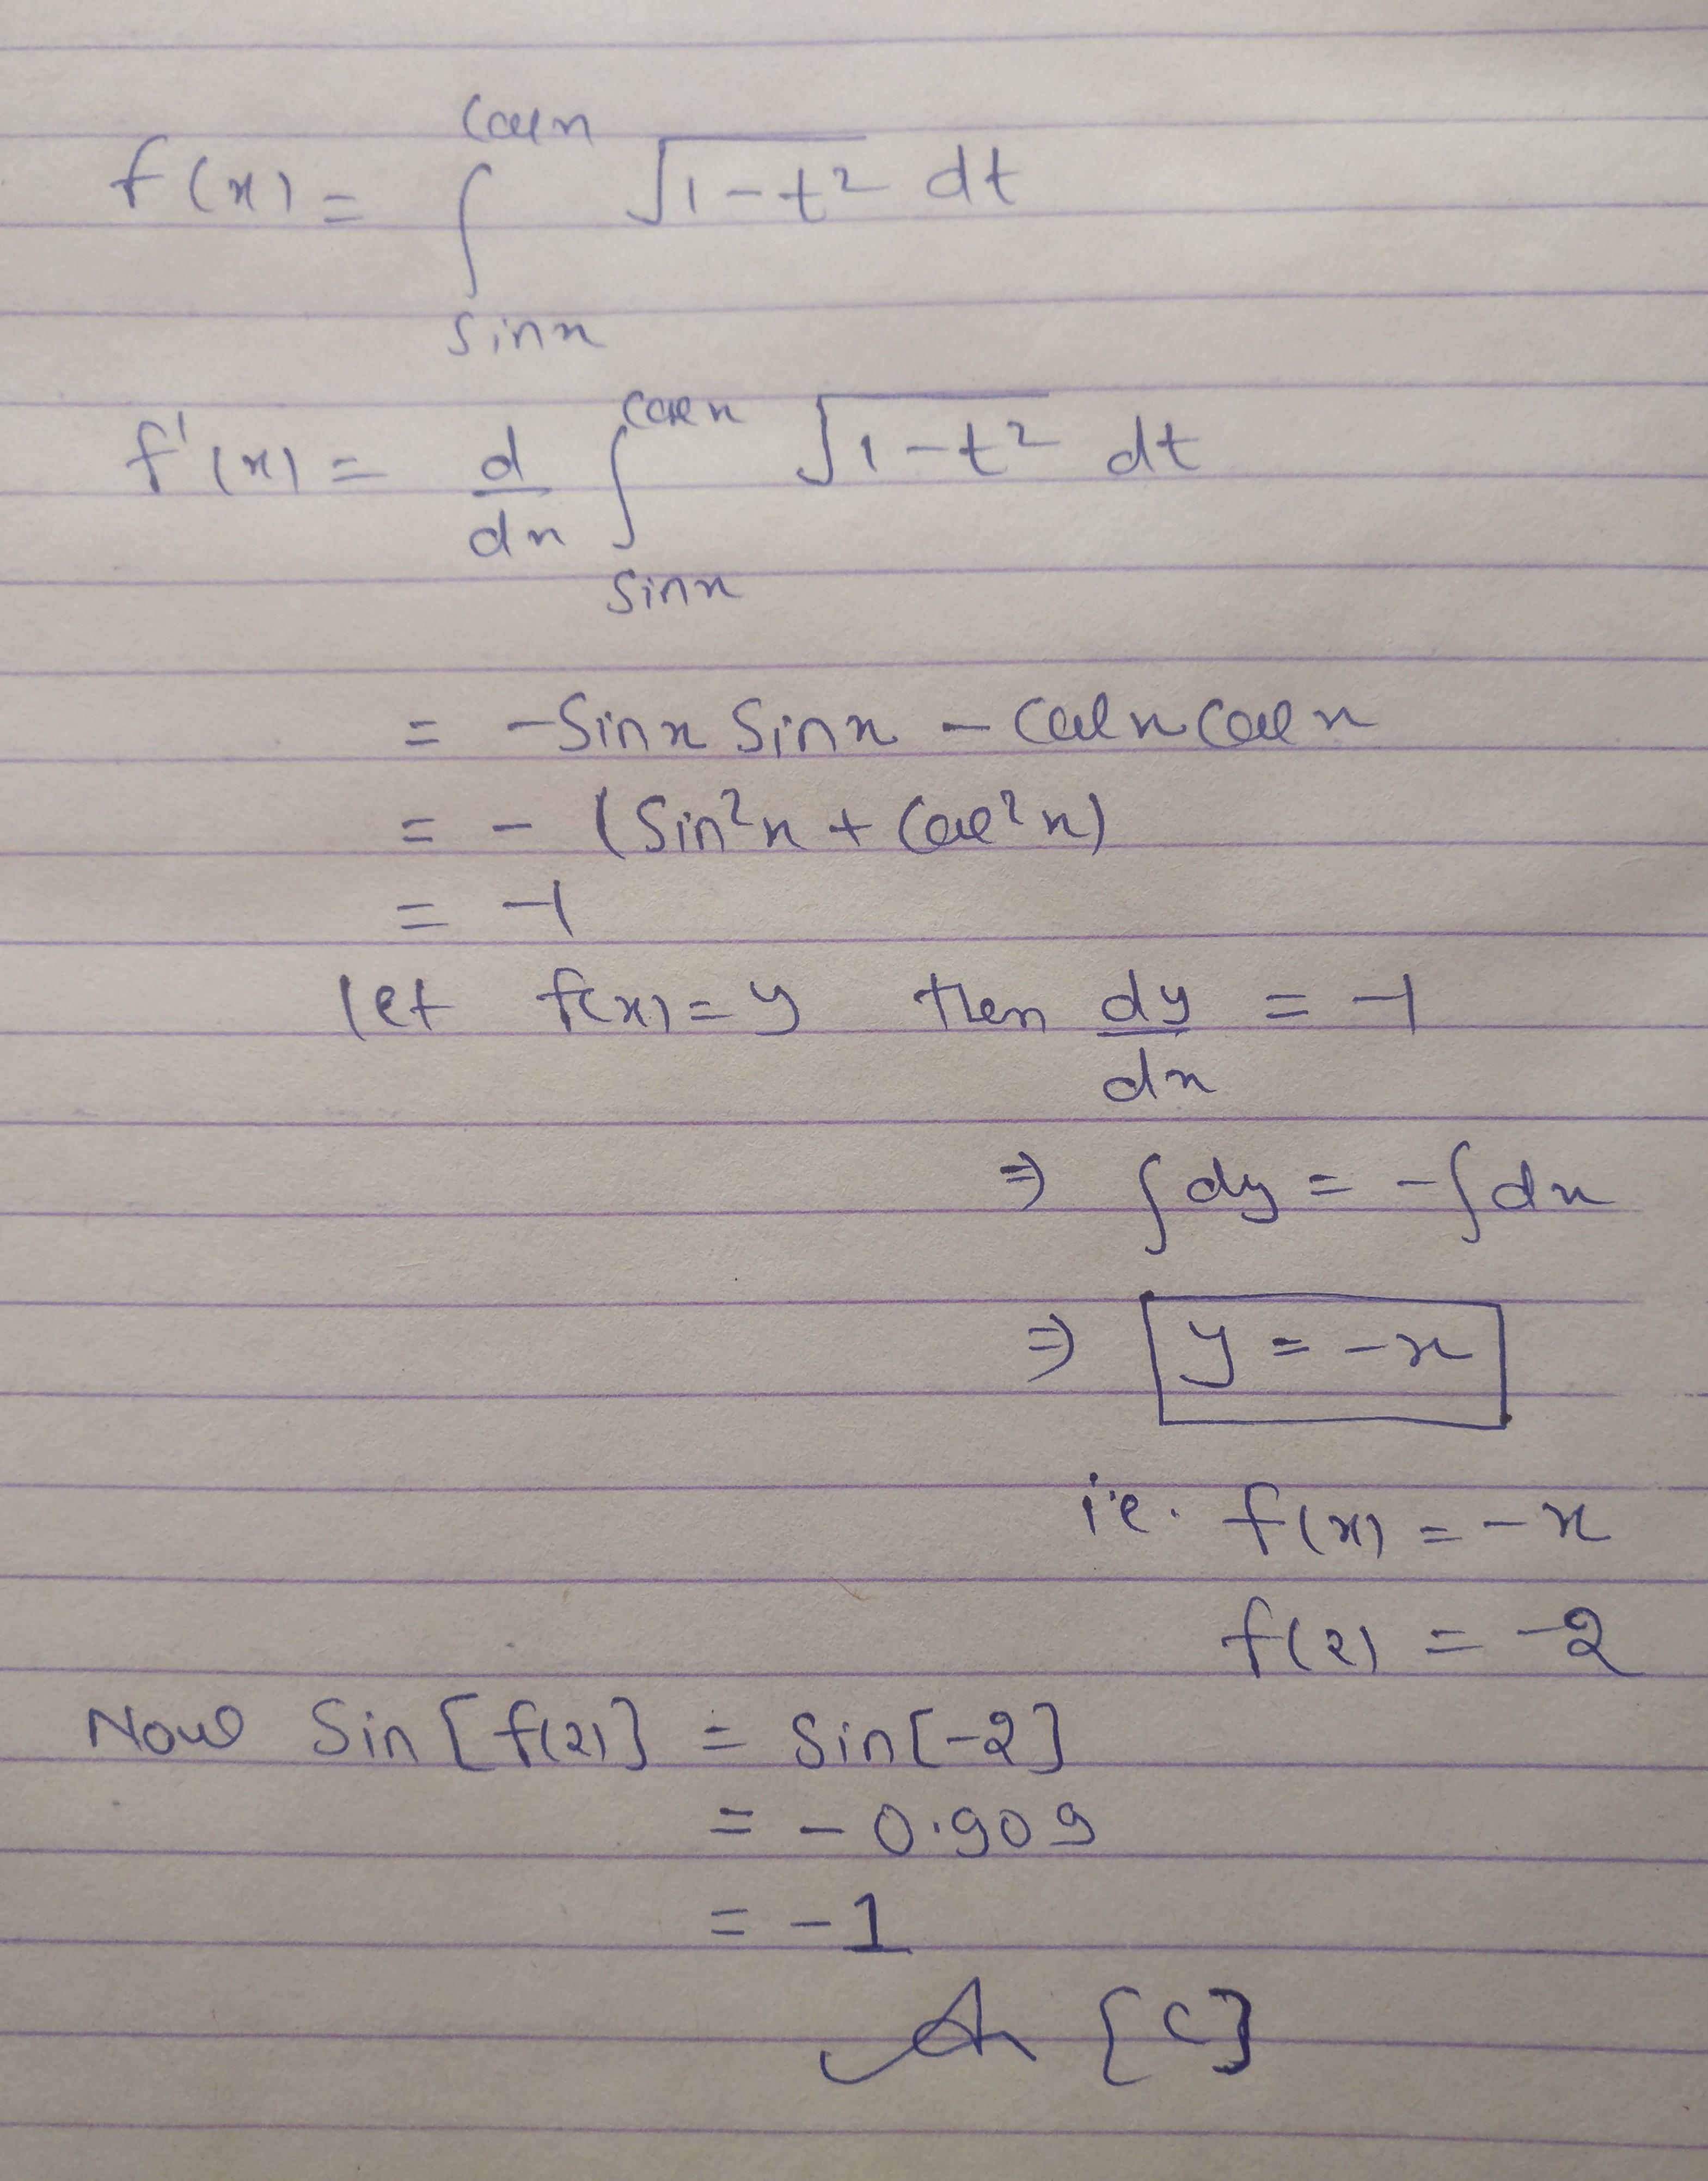 f(x) = ∫_{sinx}^{cosx} √(1-t²) dt
f'(x) = d/dx ∫_{sinx}^{cosx} √(1-t²) dt
= -Sinx Sinx - cosx cosx
= - (Sin²x + Cos²x)
= -1
let f(x) = y then dy/dx = -1
⇒ ∫dy = -∫dx
⇒ y = -x
i.e. f(x) = -x
f(2) = -2
Now Sin [f(2)] = Sin[-2]
= - 0.909
= -1
A [C]